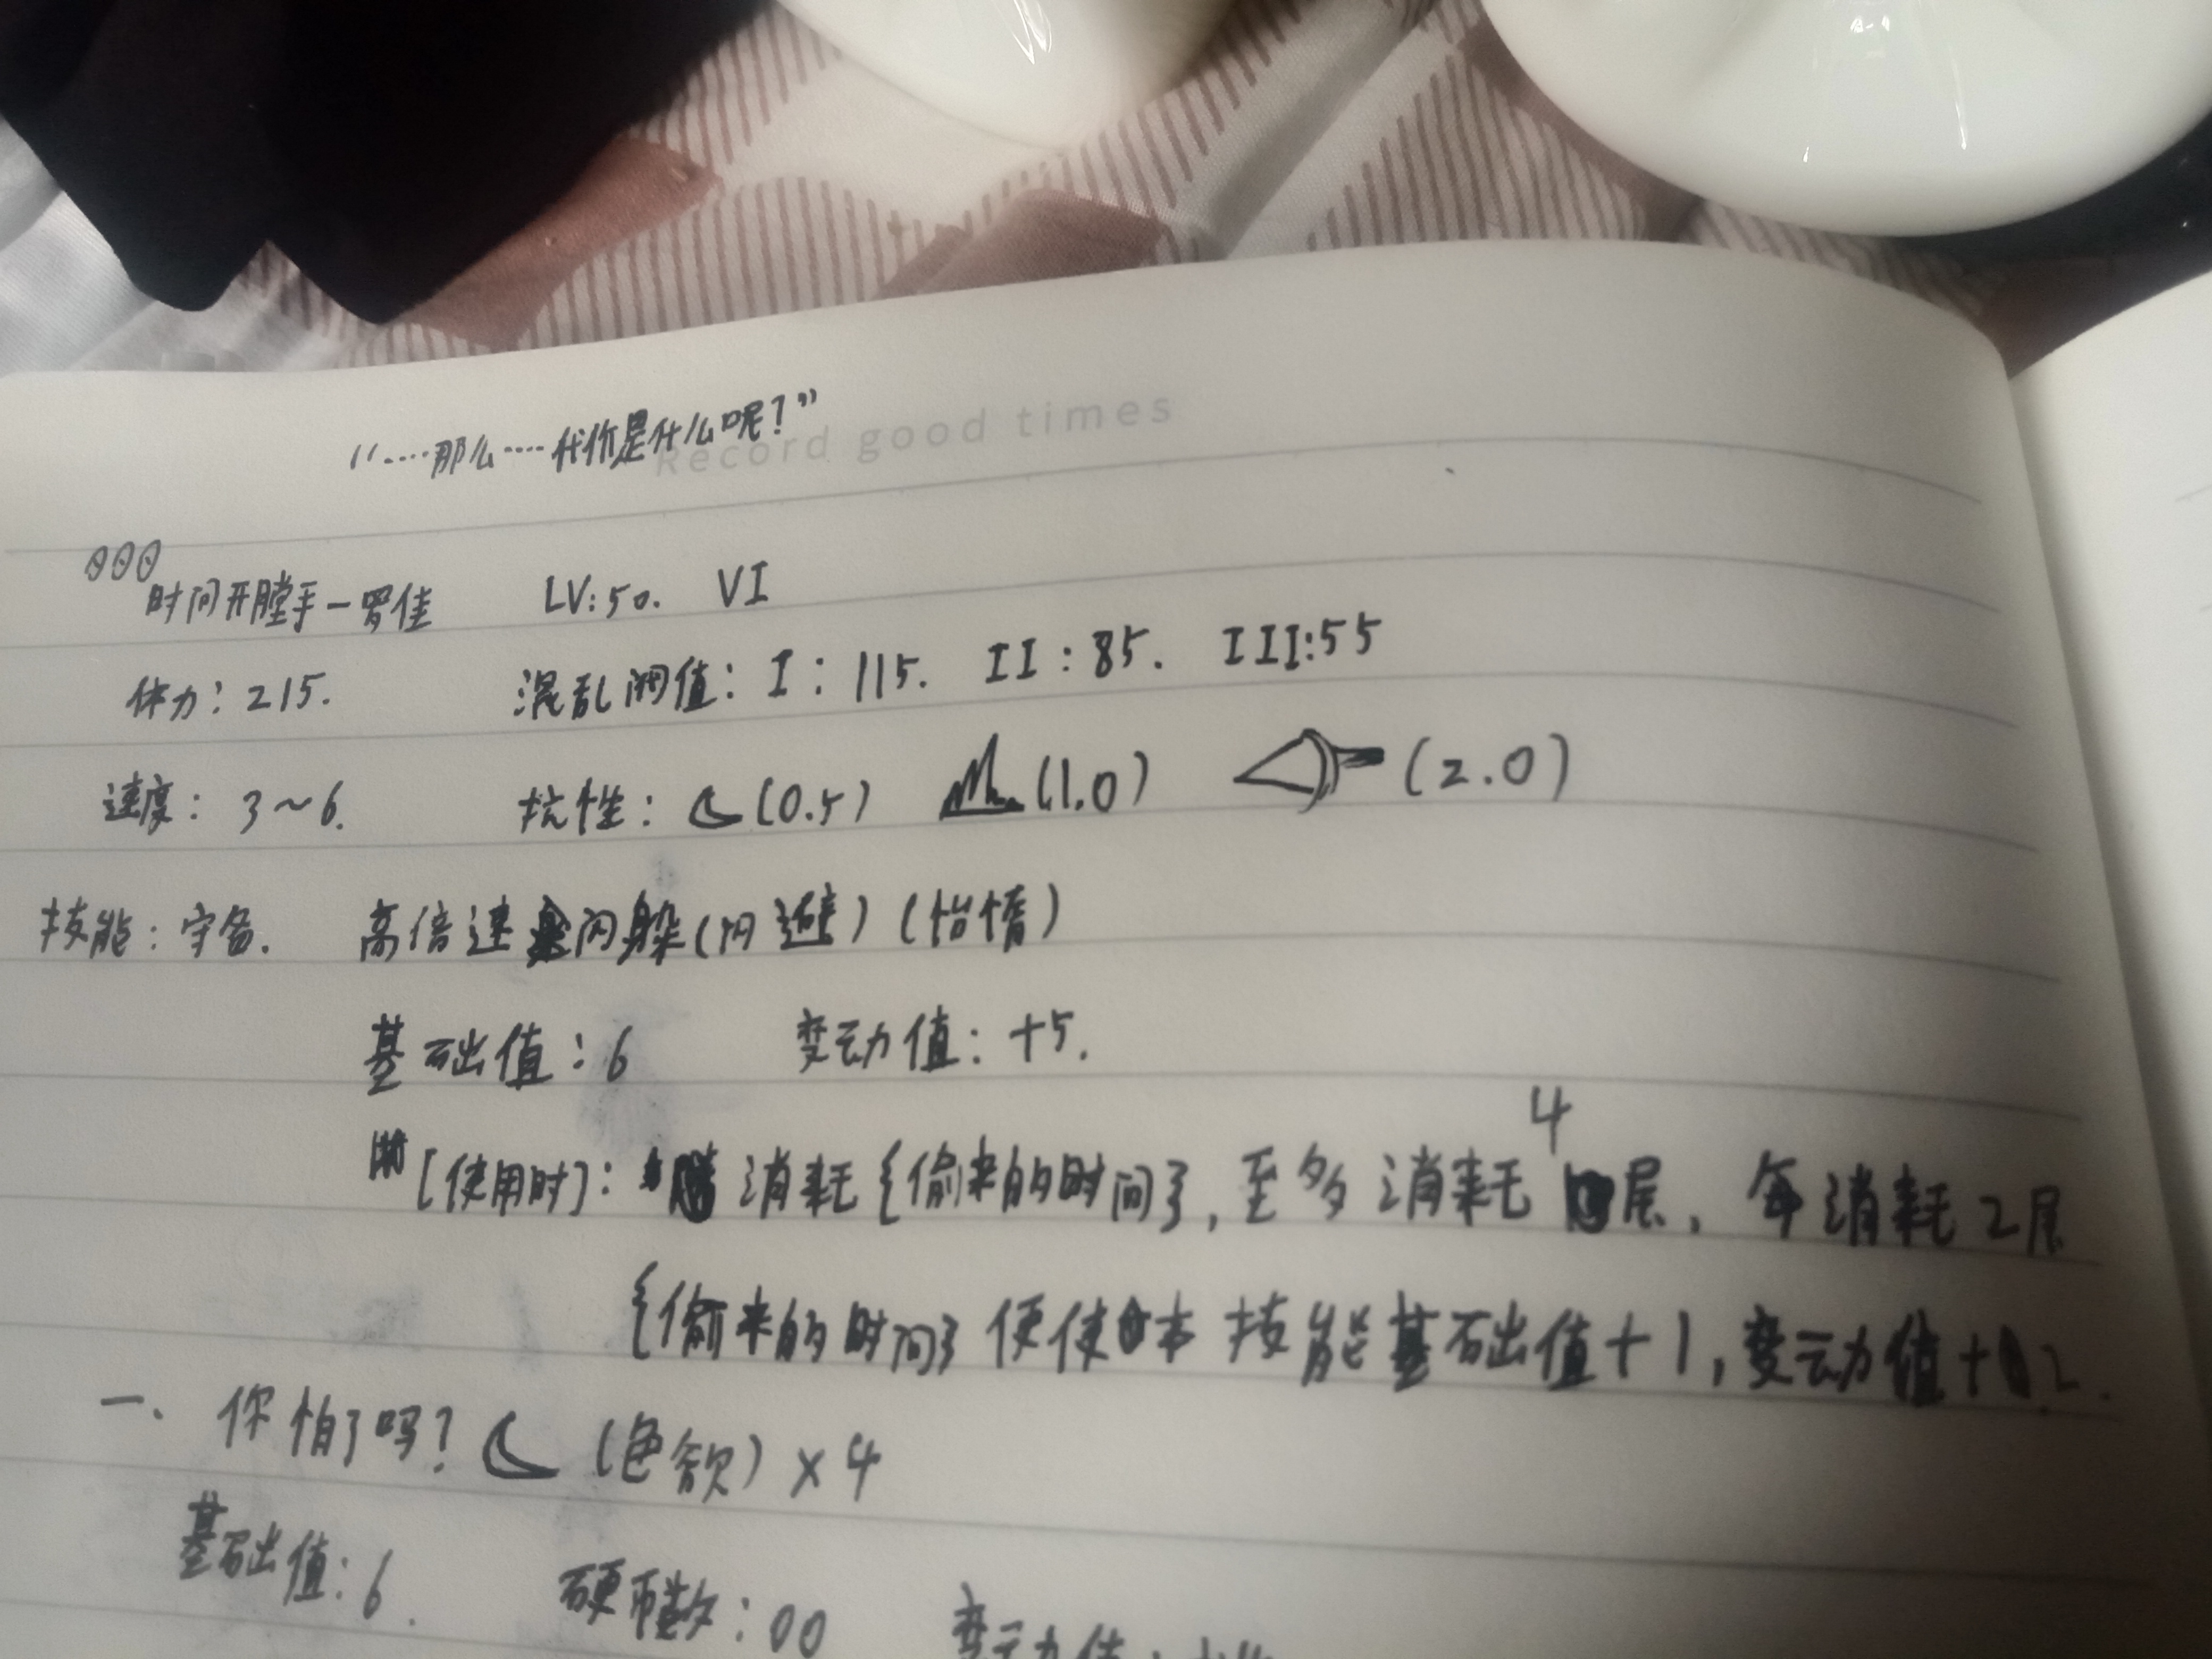 “……那么……代价是什么呢?”
Record good times
000
时间开膛手-罗佳 LV:50. VI
体力:215. 混乱阈值:I:115. II:85. III:55
速度:3~6. 抗性: (0.5) (1.0) (2.0)
技能:守备. 高倍速闪躲(闪避)(怡惰)
基础值:6 变动值:+5.
[使用时]: 消耗{偷来的时间}, 至多消耗4层, 每消耗2层
{偷来的时间}便使本技能基础值+1, 变动值+2.
一、你怕了吗? (色欲)×4
基础值:6. 硬币数:00 变动值: